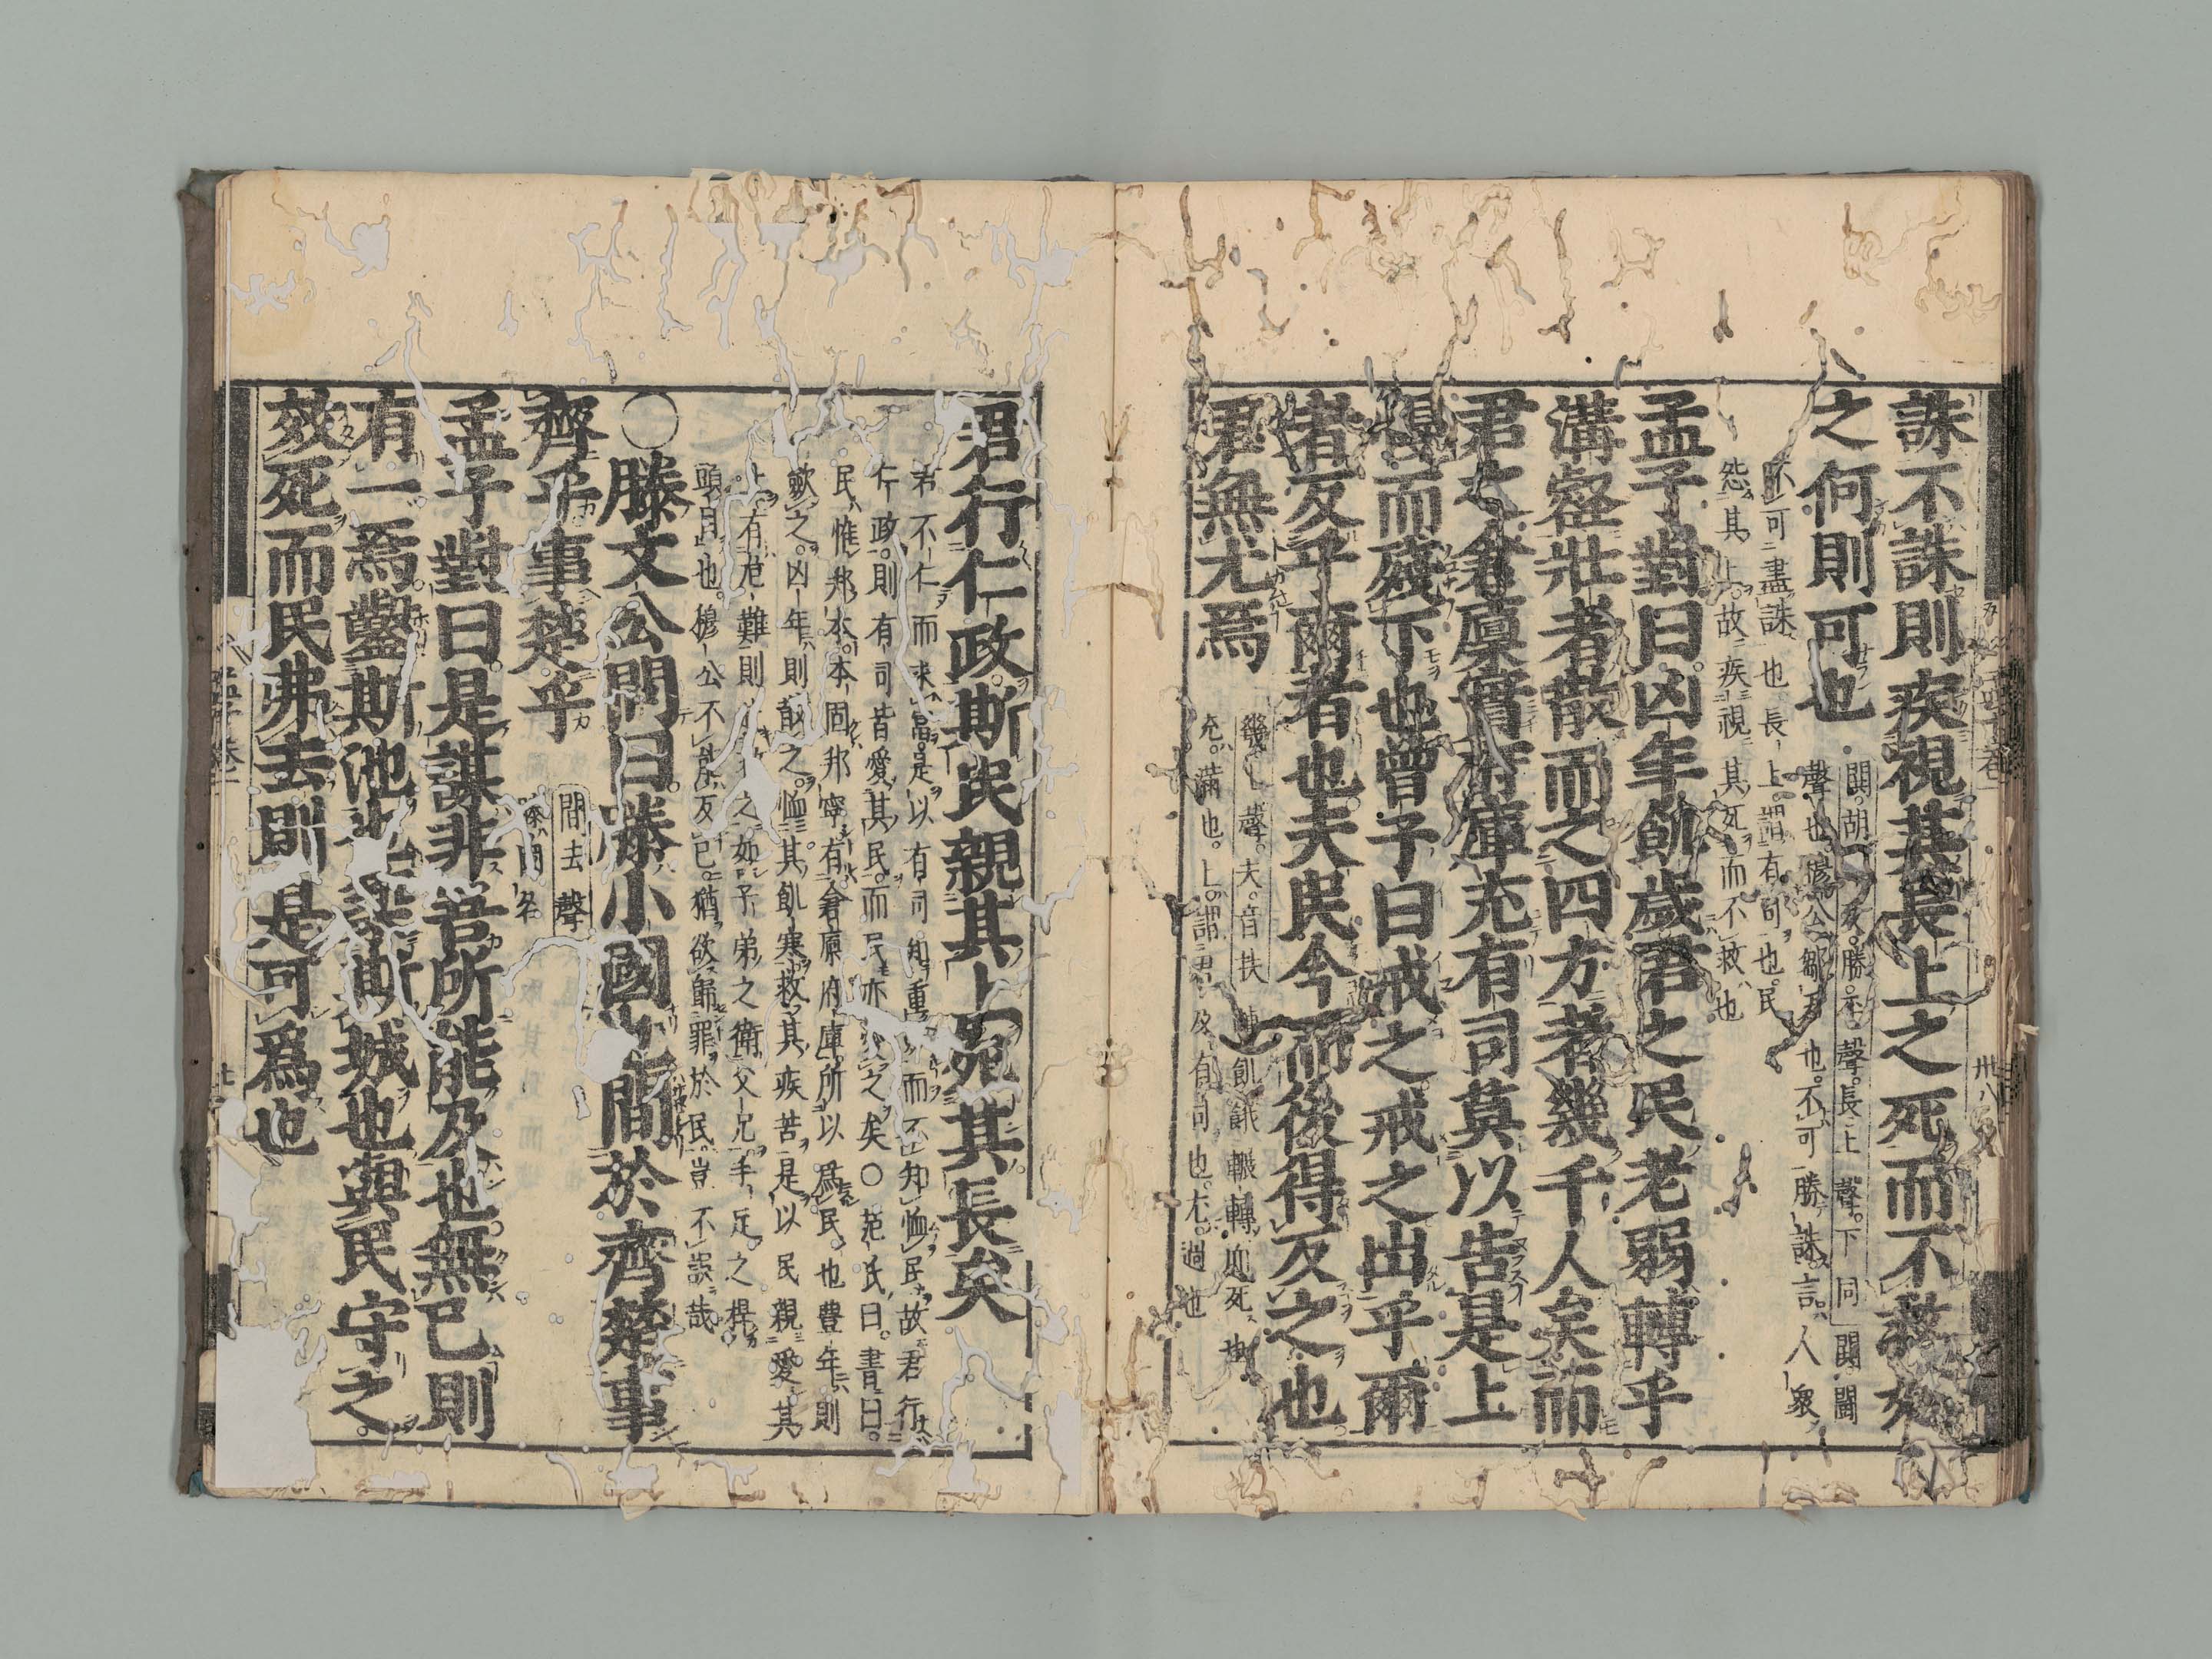 誅不誅則疾視其長上之死而不救如
之何則可也
閧胡 反勝平聲長上聲下同 閧鬭
聲也穆公鄒君也不可勝誅言人衆
不可盡誅也長上謂有司也民
怨其上故疾視其死而不救也
孟子對曰凶年飢歲君之民老弱轉乎
溝壑壯者散而之四方者幾千人矣而
君之倉廩實府庫充有司莫以告是上
慢而殘下也曾子曰戒之戒之出乎爾
者反乎爾者也夫民今而後得反之也
君無尤焉
幾上聲夫音扶 轉飢餓輾轉而死也
充滿也上謂君及有司也尤過也
君行仁政斯民親其上死其長矣
君不仁而求富是以有司知重 而不知恤民故君行
仁政則有司皆愛其民而民亦愛之矣〇范氏曰書曰
民惟邦本本固邦寧有倉廩府庫所以爲民也豊年則
歛之凶年則散之恤其飢寒救其疾苦是以民親愛其
上有危難則 救之如子弟之衛父兄手足之捍
頭目也穆公不能反己猶欲歸罪於民豈不誤哉
〇滕文公問曰滕小國也間於齊楚事
齊乎事楚乎
間去聲
滕國名
孟子對曰是謀非吾所能及也無已則
有一焉鑿斯池也築斯城也與民守之
效死而民弗去則是可爲也